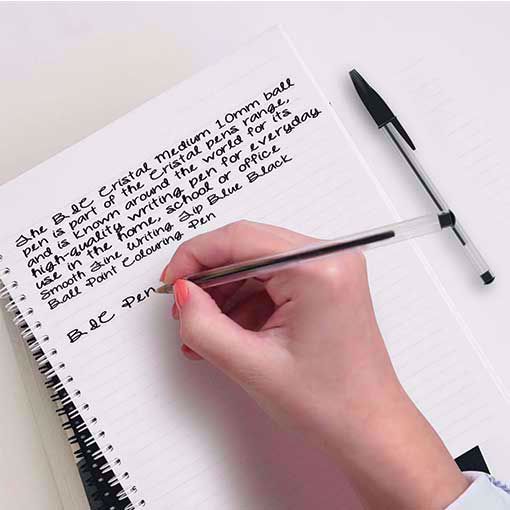 The BIC Cristal Medium 1.0mm ball
pen is part of the Cristal pens range,
and is known around the world for its
high-quality writing pen for everyday
use in the home, school or office
Smooth Line Writing Lip Blue Black
Ball Point Colouring Pen
BIC Pen